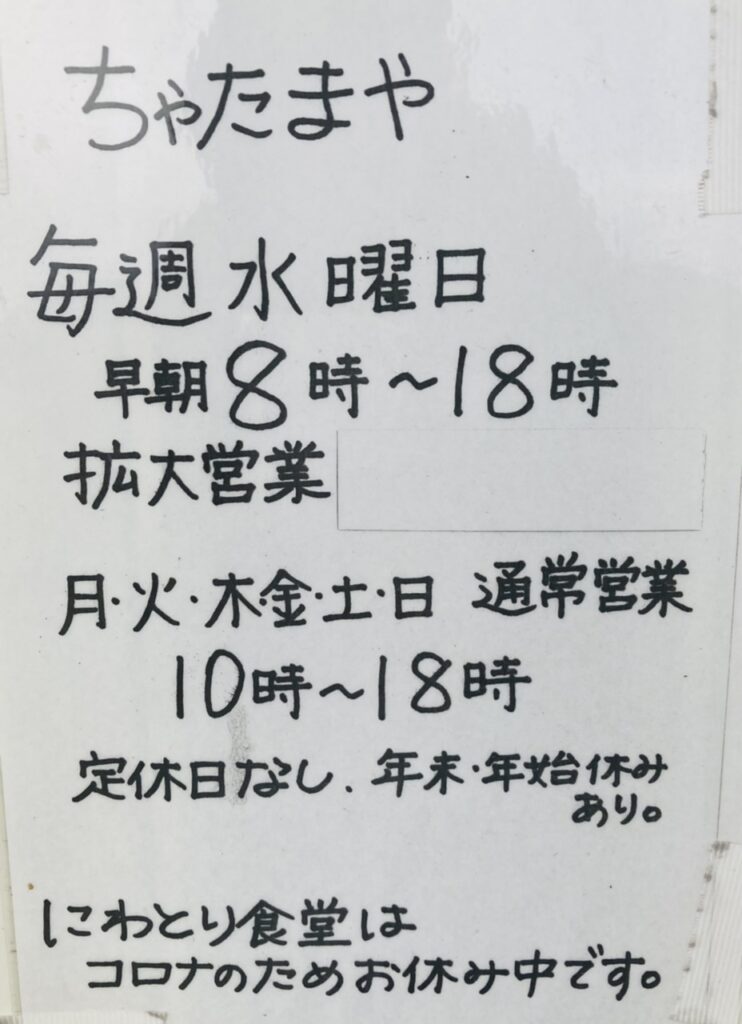 ちゃたまや
毎週水曜日
早朝8時～18時
拡大営業
月・火・木・金・土・日 通常営業
10時～18時
定休日なし、年末・年始休み
あり。
にわとり食堂は
コロナのためお休み中です。